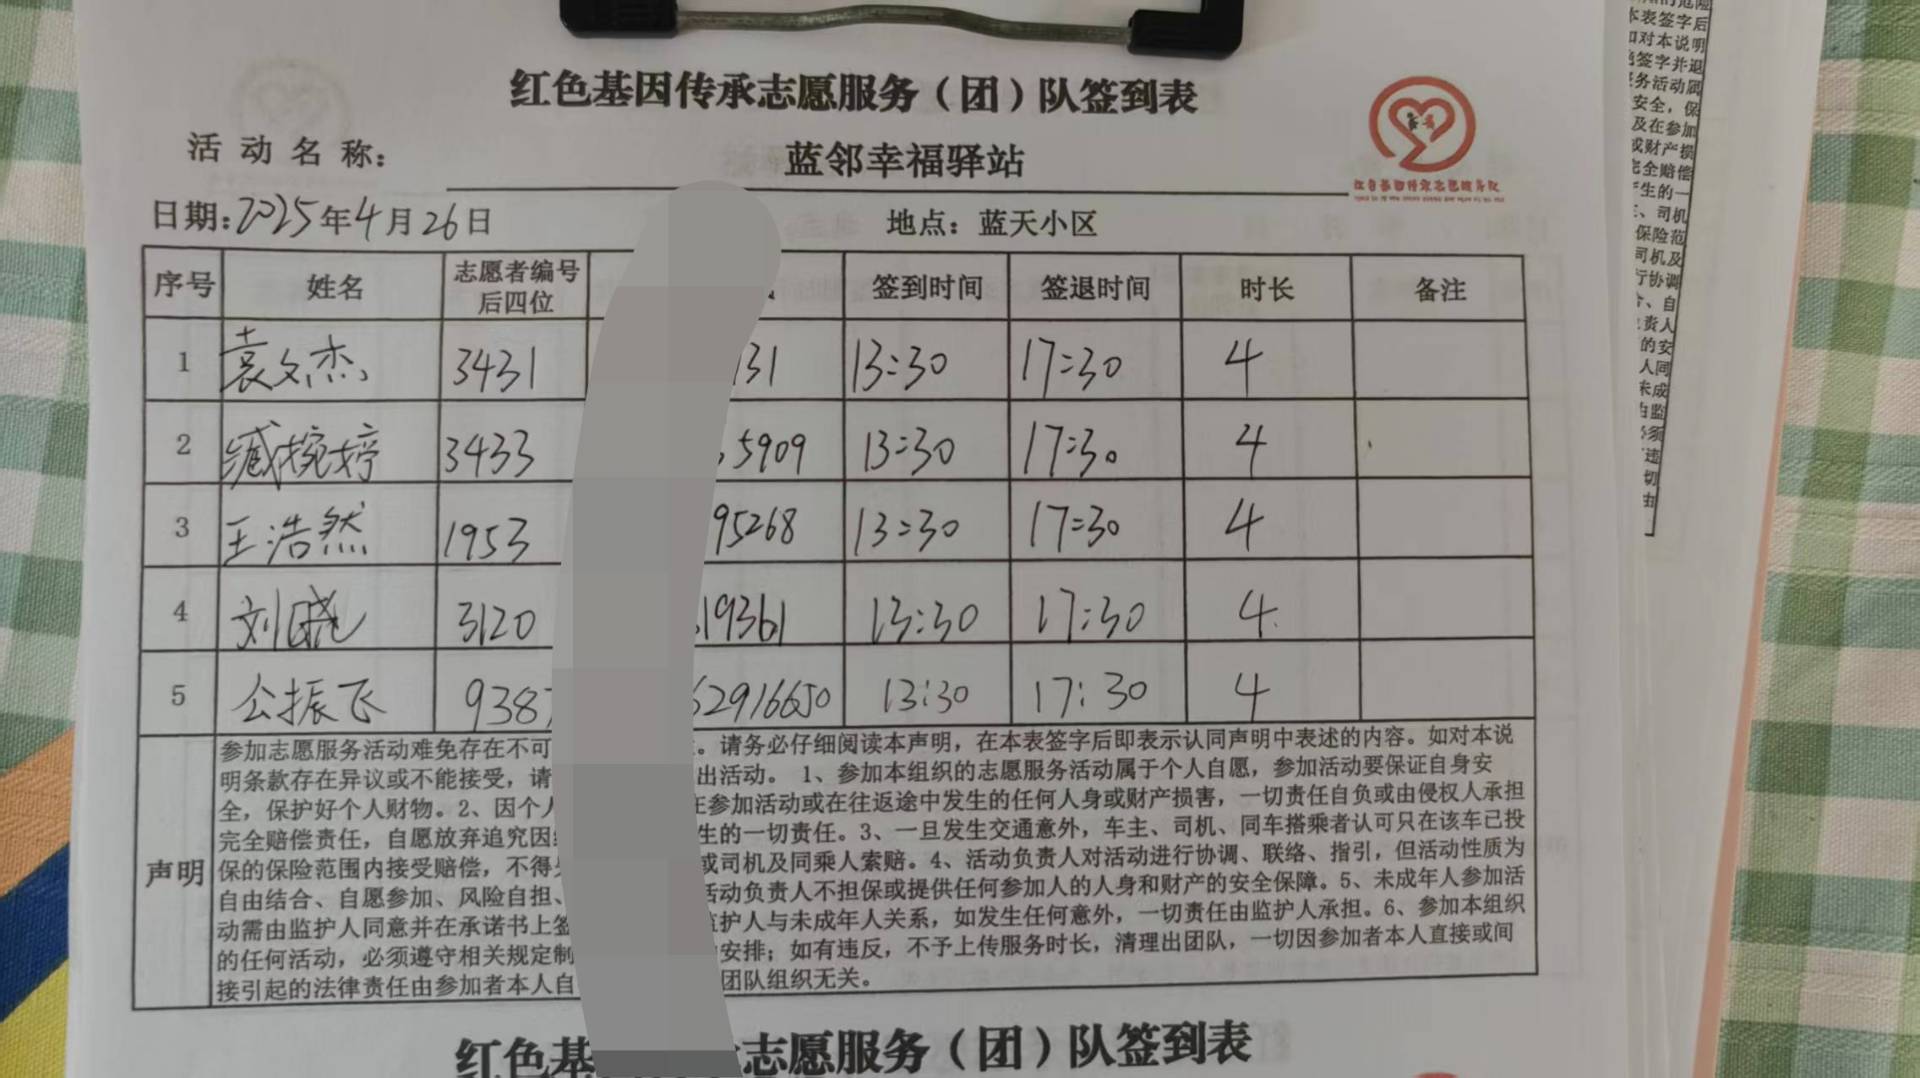 红色基因传承志愿服务（团）队签到表
活动名称： 蓝邻幸福驿站
日期：2025年4月26日 地点：蓝天小区
序号 姓名 志愿者编号后四位 签到时间 签退时间 时长 备注
1 袁文杰 3431 131 13:30 17:30 4
2 臧婉婷 3433 5909 13:30 17:30 4
3 王浩然 1953 95268 13:30 17:30 4
4 刘晓 3120 19361 13:30 17:30 4
5 公振飞 9387 62916650 13:30 17:30 4
声明
参加志愿服务活动难免存在不可 。请务必仔细阅读本声明，在本表签字后即表示认同声明中表述的内容。如对本说
明条款存在异议或不能接受，请 出活动。1、参加本组织的志愿服务活动属于个人自愿，参加活动要保证自身安
全，保护好个人财物。2、因个人 在参加活动或在往返途中发生的任何人身或财产损害，一切责任自负或由侵权人承担
完全赔偿责任，自愿放弃追究因 生的一切责任。3、一旦发生交通意外，车主、司机、同车搭乘者认可只在该车已投
保的保险范围内接受赔偿，不得 或司机及同乘人索赔。4、活动负责人对活动进行协调、联络、指引，但活动性质为
自由结合、自愿参加、风险自担、 活动负责人不担保或提供任何参加人的人身和财产的安全保障。5、未成年人参加活
动需由监护人同意并在承诺书上签 监护人与未成年人关系，如发生任何意外，一切责任由监护人承担。6、参加本组织
的任何活动，必须遵守相关规定制 安排；如有违反，不予上传服务时长，清理出团队，一切因参加者本人直接或间
接引起的法律责任由参加者本人自 团队组织无关。
红色基 承志愿服务（团）队签到表
红色基因传承志愿服务队
本表签字后
如对本说明
签字并退
务活动属
安全，保
及在参加
或财产损
完全赔偿
生的一
、司机
保险范
司机及
行协调
、自
责人
的安
人同
未成
监
必须
违
切
由